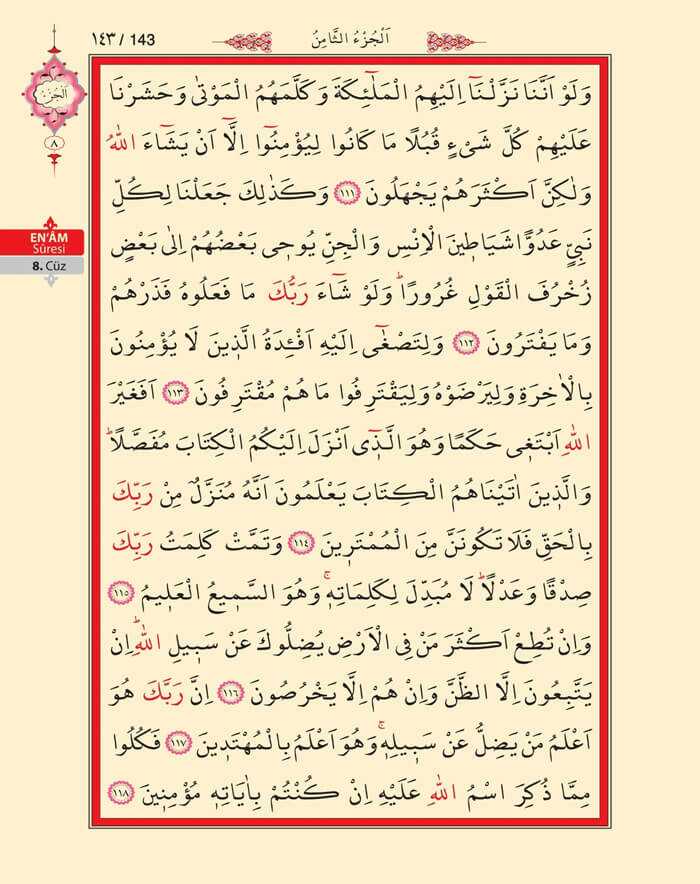 ١٤٣ / 143
اَلْجُزْءُ الثَّامِنُ
اَلْجُزْءُ
٨
EN'ÂM
Sûresi
8. Cüz
وَلَوْ اَنَّنَا نَزَّلْنَٓا اِلَيْهِمُ الْمَلٰٓئِكَةَ وَكَلَّمَهُمُ الْمَوْتٰى وَحَشَرْنَا
عَلَيْهِمْ كُلَّ شَيْءٍ قُبُلًا مَا كَانُوا لِيُؤْمِنُٓوا اِلَّٓا اَنْ يَشَٓاءَ اللّٰهُ
وَلٰكِنَّ اَكْثَرَهُمْ يَجْهَلُونَ ﴿١١١﴾ وَكَذٰلِكَ جَعَلْنَا لِكُلِّ
نَبِيٍّ عَدُوًّا شَيَاط۪ينَ الْاِنْسِ وَالْجِنِّ يُوح۪ي بَعْضُهُمْ اِلٰى بَعْضٍ
زُخْرُفَ الْقَوْلِ غُرُورًاۜ وَلَوْ شَٓاءَ رَبُّكَ مَا فَعَلُوهُ فَذَرْهُمْ
وَمَا يَفْتَرُونَ ﴿١١٢﴾ وَلِتَصْغٰٓى اِلَيْهِ اَفْـِٔدَةُ الَّذ۪ينَ لَا يُؤْمِنُونَ
بِالْاٰخِرَةِ وَلِيَرْضَوْهُ وَلِيَقْتَرِفُوا مَا هُمْ مُقْتَرِفُونَ ﴿١١٣﴾ اَفَغَيْرَ
اللّٰهِ اَبْتَغ۪ي حَكَمًا وَهُوَ الَّذ۪ٓي اَنْزَلَ اِلَيْكُمُ الْكِتَابَ مُفَصَّلًاۜ
وَالَّذ۪ينَ اٰتَيْنَاهُمُ الْكِتَابَ يَعْلَمُونَ اَنَّهُ مُنَزَّلٌ مِنْ رَبِّكَ
بِالْحَقِّ فَلَا تَكُونَنَّ مِنَ الْمُمْتَر۪ينَ ﴿١١٤﴾ وَتَمَّتْ كَلِمَتُ رَبِّكَ
صِدْقًا وَعَدْلًاۜ لَا مُبَدِّلَ لِكَلِمَاتِه۪ۚ وَهُوَ السَّم۪يعُ الْعَل۪يمُ ﴿١١٥﴾
وَاِنْ تُطِعْ اَكْثَرَ مَنْ فِي الْاَرْضِ يُضِلُّوكَ عَنْ سَب۪يلِ اللّٰهِۜ اِنْ
يَتَّبِعُونَ اِلَّا الظَّنَّ وَاِنْ هُمْ اِلَّا يَخْرُصُونَ ﴿١١٦﴾ اِنَّ رَبَّكَ هُوَ
اَعْلَمُ مَنْ يَضِلُّ عَنْ سَب۪يلِه۪ۚ وَهُوَ اَعْلَمُ بِالْمُهْتَد۪ينَ ﴿١١٧﴾ فَكُلُوا
مِمَّا ذُكِرَ اسْمُ اللّٰهِ عَلَيْهِ اِنْ كُنْتُمْ بِاٰيَاتِه۪ مُؤْمِن۪ينَ ﴿١١٨﴾